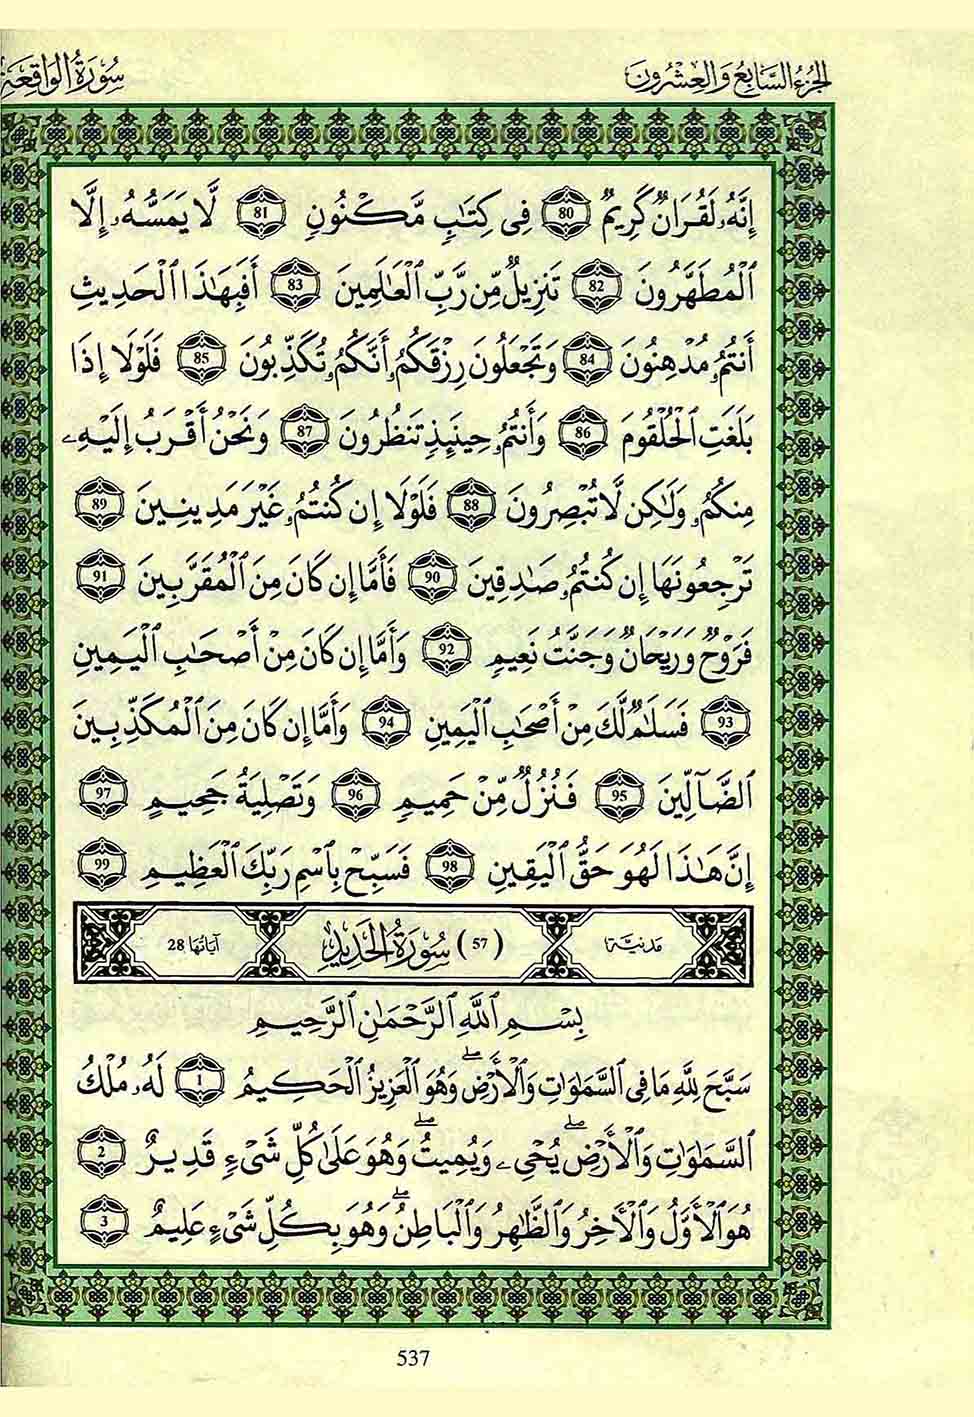 الجزء السابع والعشرون
سورة الواقعة
إِنَّهُۥ لَقُرَانٌ كَرِيمٌ 80 فِى كِتَٰبٍ مَّكْنُونٍ 81 لَّا يَمَسُّهُۥ إِلَّا
ٱلْمُطَهَّرُونَ 82 تَنزِيلٌ مِّن رَّبِّ ٱلْعَٰلَمِينَ 83 أَفَبِهَٰذَا ٱلْحَدِيثِ
أَنتُمُۥ مُدْهِنُونَ 84 وَتَجْعَلُونَ رِزْقَكُمُۥ أَنَّكُمُۥ تُكَذِّبُونَ 85 فَلَوْلَا إِذَا
بَلَغَتِ ٱلْحُلْقُومَ 86 وَأَنتُمُۥ حِينَئِذٍ تَنظُرُونَ 87 وَنَحْنُ أَقْرَبُ إِلَيْهِۦ
مِنكُمُۥ وَلَٰكِن لَّا تُبْصِرُونَ 88 فَلَوْلَا إِن كُنتُمُۥ غَيْرَ مَدِينِينَ 89
تَرْجِعُونَهَا إِن كُنتُمُۥ صَٰدِقِينَ 90 فَأَمَّا إِن كَانَ مِنَ ٱلْمُقَرَّبِينَ 91
فَرَوْحٌ وَرَيْحَانٌ وَجَنَّتُ نَعِيمٍ 92 وَأَمَّا إِن كَانَ مِنْ أَصْحَٰبِ ٱلْيَمِينِ
93 فَسَلَٰمٌ لَّكَ مِنْ أَصْحَٰبِ ٱلْيَمِينِ 94 وَأَمَّا إِن كَانَ مِنَ ٱلْمُكَذِّبِينَ
ٱلضَّآلِّينَ 95 فَنُزُلٌ مِّنْ حَمِيمٍ 96 وَتَصْلِيَةُ جَحِيمٍ 97
إِنَّ هَٰذَا لَهُوَ حَقُّ ٱلْيَقِينِ 98 فَسَبِّحْ بِٱسْمِ رَبِّكَ ٱلْعَظِيمِ 99
مدنية (57) سورة الحديد آياتها 28
بِسْمِ ٱللَّهِ ٱلرَّحْمَٰنِ ٱلرَّحِيمِ
سَبَّحَ لِلَّهِ مَا فِى ٱلسَّمَٰوَٰتِ وَٱلْأَرْضِۖ وَهُوَ ٱلْعَزِيزُ ٱلْحَكِيمُ 1 لَهُۥ مُلْكُ
ٱلسَّمَٰوَٰتِ وَٱلْأَرْضِۖ يُحْىِۦ وَيُمِيتُۖ وَهُوَ عَلَىٰ كُلِّ شَىْءٍ قَدِيرٌ 2
هُوَ ٱلْأَوَّلُ وَٱلْأَخِرُ وَٱلظَّٰهِرُ وَٱلْبَاطِنُۖ وَهُوَ بِكُلِّ شَىْءٍ عَلِيمٌ 3
537